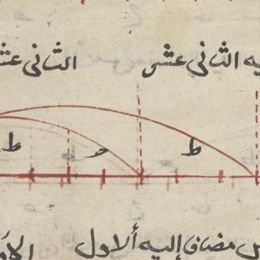 يه الثاني عشر الثاني عشر
ط ح ط
س مضاف إليه ألاول الأو